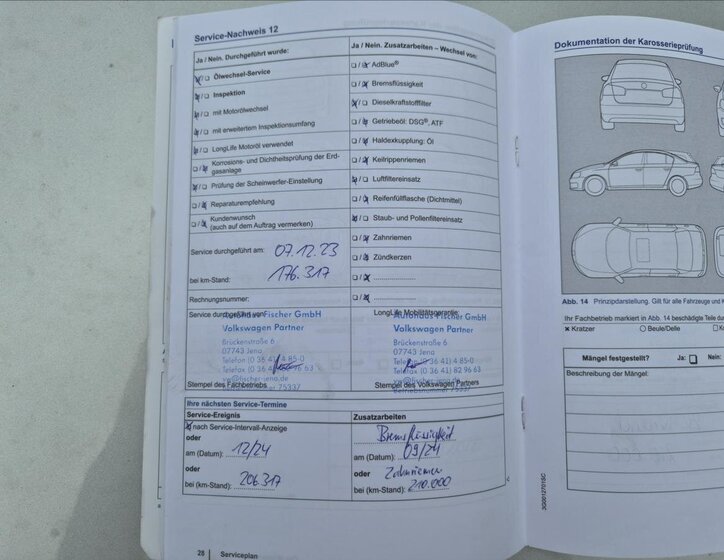 Service-Nachweis 12
Ja / Nein. Durchgeführt wurde:
Ölwechsel-Service
Inspektion
mit Motorölwechsel
mit erweitertem Inspektionsumfang
LongLife Motoröl verwendet
Korrosions- und Dichtheitsprüfung der Erd-
gasanlage
Prüfung der Scheinwerfer-Einstellung
Reparaturempfehlung
Kundenwunsch
(auch auf dem Auftrag vermerken)
Service durchgeführt am: 07.12.23
bei km-Stand: 176.317
Rechnungsnummer:
Ja / Nein. Zusatzarbeiten – Wechsel von:
AdBlue®
Bremsflüssigkeit
Dieselkraftstofffilter
Getriebeöl: DSG®, ATF
Haldexkupplung: Öl
Keilrippenriemen
Luftfiltereinsatz
Reifenfüllflasche (Dichtmittel)
Staub- und Pollenfiltereinsatz
Zahnriemen
Zündkerzen
Service durchgeführt von:
Autohaus Fischer GmbH
Volkswagen Partner
Brückenstraße 6
07743 Jena
Telefon (0 36 41) 4 85-0
Telefax (0 36 41) 82 96 63
vw@fischer-jena.de
Betriebsnummer 75337
Stempel des Fachbetriebs
LongLife Mobilitätsgarantie:
Autohaus Fischer GmbH
Volkswagen Partner
Brückenstraße 6
07743 Jena
Telefon (0 36 41) 4 85-0
Telefax (0 36 41) 82 96 63
vw@fischer-jena.de
Betriebsnummer 75337
Stempel des Volkswagen Partners
Ihre nächsten Service-Termine
Service-Ereignis
nach Service-Intervall-Anzeige
oder
am (Datum): 12/24
oder
bei (km-Stand): 206.317
Zusatzarbeiten
Bremsflüssigkeit
am (Datum): 09/24
oder Zahnriemen
bei (km-Stand): 210.000
28 Serviceplan
Dokumentation der Karosserieprüfung
Abb. 14 Prinzipdarstellung. Gilt für alle Fahrzeuge und
Ihr Fachbetrieb markiert in Abb. 14 beschädigte Teile
Kratzer Beule/Delle
Mängel festgestellt? Ja: Nein:
Beschreibung der Mängel:
3G0012701SC